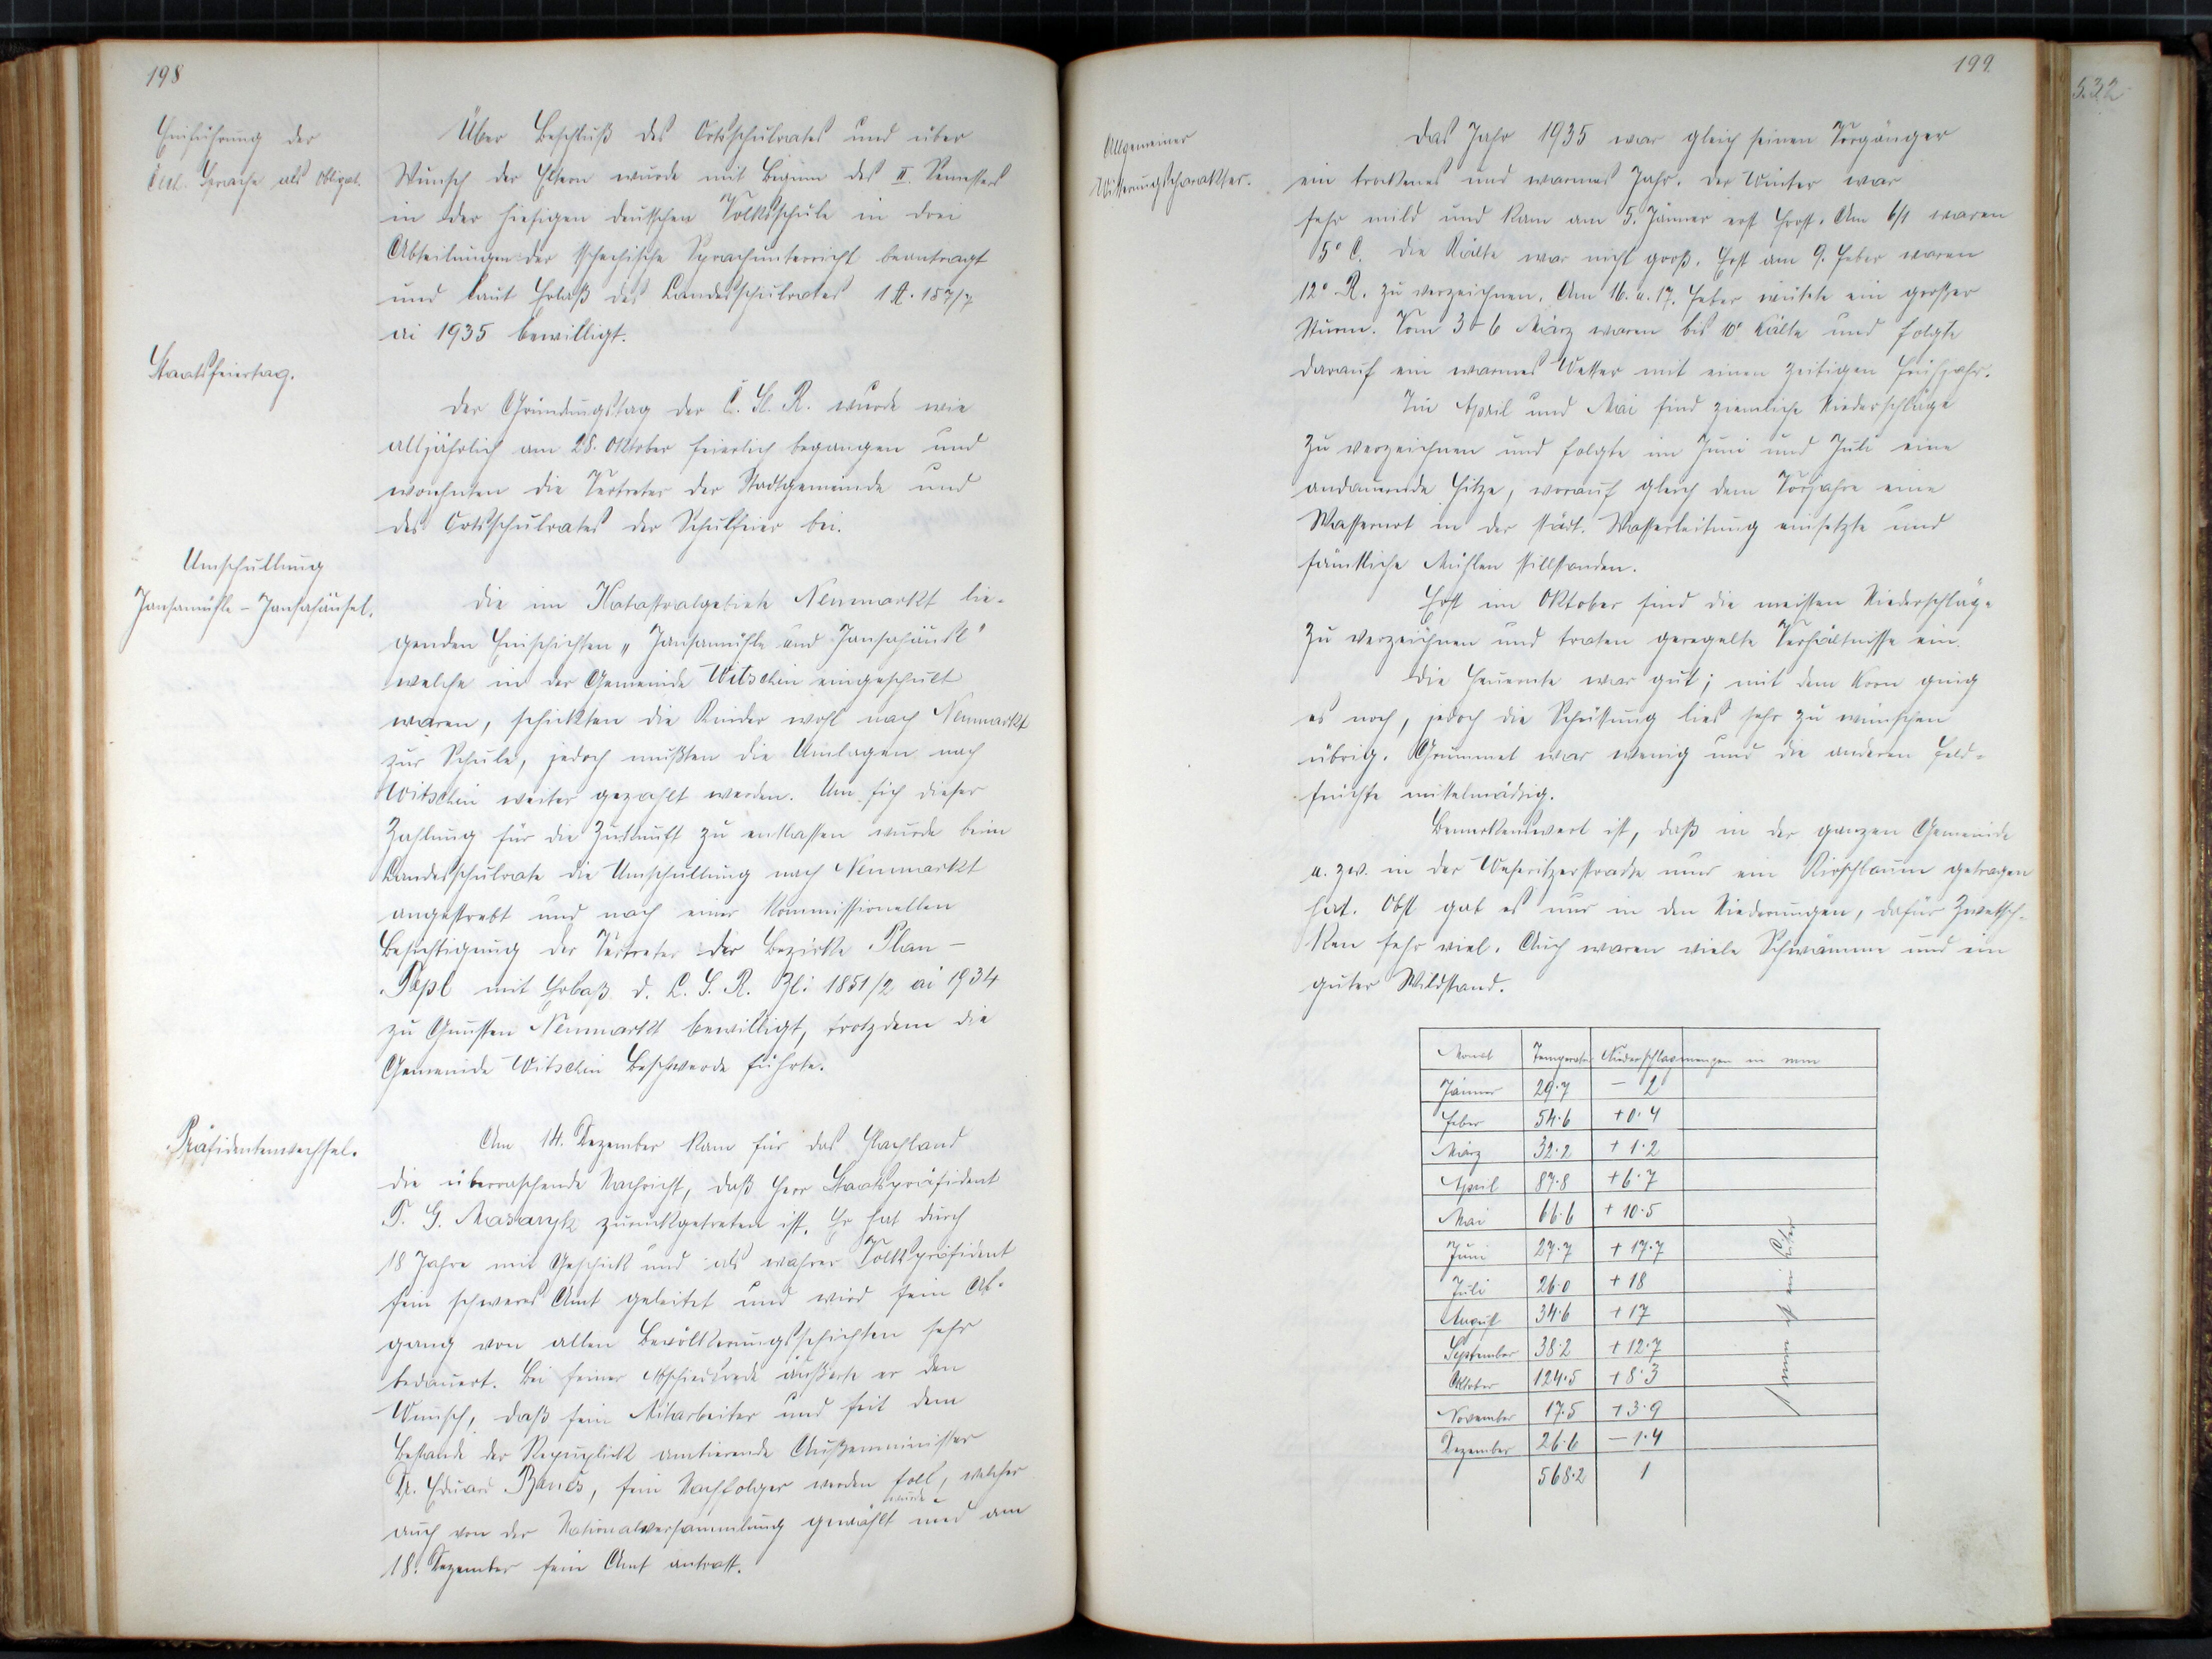 198
Einführung der
čsl. Sprache als Obligat.
Über Beschluß des Ortsschulrates und über
Wunsch der Eltern wurde mit Beginn des II. Semesters
in der hiesigen deutschen Volksschule in drei
Abteilungen der tschechische Sprachunterricht beantragt
und laut Erlaß des Landesschulrates 1 A. 157/7
ai 1935 bewilligt.
Staatsfeiertag.
Der Gründungstag der Č. Sl. R. wurde wie
alljährlich am 28. Oktober feierlich begangen und
wohnten die Vertreter der Stadtgemeinde und
des Ortsschulrates der Schulfeier bei.
Umschullung
Jansamühle - Jansahäusel.
Die im Katastralgebiete Neumarkt lie-
genden Einschichten „Jansamühle und Jansahäusl"
welche in der Gemeinde Witschin eingeschult
waren, schickten die Kinder wohl nach Neumarkt
zur Schule, jedoch mußten die Umlagen nach
Witschin weiter gezahlt werden. Um sich dieser
Zahlung für die Zukunft zu entlassen wurde beim
Landesschulrate die Umschullung nach Neumarkt
angestrebt und nach einer Kommissionellen
Besichtigung der Vertreter der Bezirke Plan -
Tepl mit Erlaß d. L. S. R. Zl: 1851/2 ai 1934
zu Gunsten Neumarkt bewilligt, trotzdem die
Gemeinde Witschin Beschwerde führte.
Präsidentenwechsel.
Am 14. Dezember kam für das Flachland
die überraschende Nachricht, daß Herr Staatspräsident
T. G. Masaryk zurückgetreten ist. Er hat durch
18 Jahre mit Geschick und als wahrer Volkspräsident
sein schweres Amt geleitet und wird sein Ab-
gang von allen Bevölkerungsschichten sehr
bedauert. Bei seiner Abschiedsrede äußerte er den
Wunsch, daß sein Mitarbeiter und seit dem
Bestande der Republick amtierende Außenminister
Dr. Eduard Beneš, sein Nachfolger werden soll, welcher
auch von der Nationalversammlung gewählt wurde und am
18. Dezember sein Amt antratt.
199
Allgemeiner
Witterungscharakter.
Das Jahr 1935 war gleich seinen Vorgänger
ein trockenes und warmes Jahr. Der Winter war
sehr mild und kam am 5. Jänner erst Frost. Am 6/1 waren
15° C. Die Kälte war nicht groß. Erst am 9. Feber waren
12° R. zu verzeichnen. Am 16. u. 17. Feber wütete ein großer
Sturm. Vom 3 - 6 März waren bis 10° Kälte und folgte
darauf ein warmes Wetter mit einen zeitigen Frühjahr.
Im April und Mai sind ziemliche Niederschläge
zu verzeichnen und folgte im Juni und Juli eine
andauernde Hitze, worauf gleich dem Vorjahre eine
Wassernot in der städt. Wasserleitung einsetzte und
sämtliche Mühlen stillstanden.
Erst im Oktober sind die meisten Niederschläge
zu verzeichnen und traten geregelte Verhältnisse ein.
Die Heuernte war gut; mit dem Korn ging
es noch, jedoch die Schüttung lies sehr zu wünschen
übrig. Grummet war wenig und die anderen Feld-
früchte mittelmäßig.
Bemerkenswert ist, daß in der ganzen Gemeinde
u. zw. in der Weseritzerstraße nur ein Kirschbaum getragen
hat. Obst gab es nur in den Niederungen, dafür Zwetsch-
ken sehr viel. Auch waren viele Schwämme und ein
guter Wildstand.
Monat Temperatur Niederschlagmengen in mm
Jänner 29·7 - 2
Feber 54·6 +0·4
März 32·2 +1·2
April 87·8 +6·7
Mai 66·6 +10·5
Juni 27·7 +17·7
Juli 26·0 +18
August 34·6 +17
September 38·2 +12·7
Oktober 124·5 +8·3
November 17·5 +3·9
Dezember 26·6 -1·4
568·2 1
1 mm ist ein Liter
532